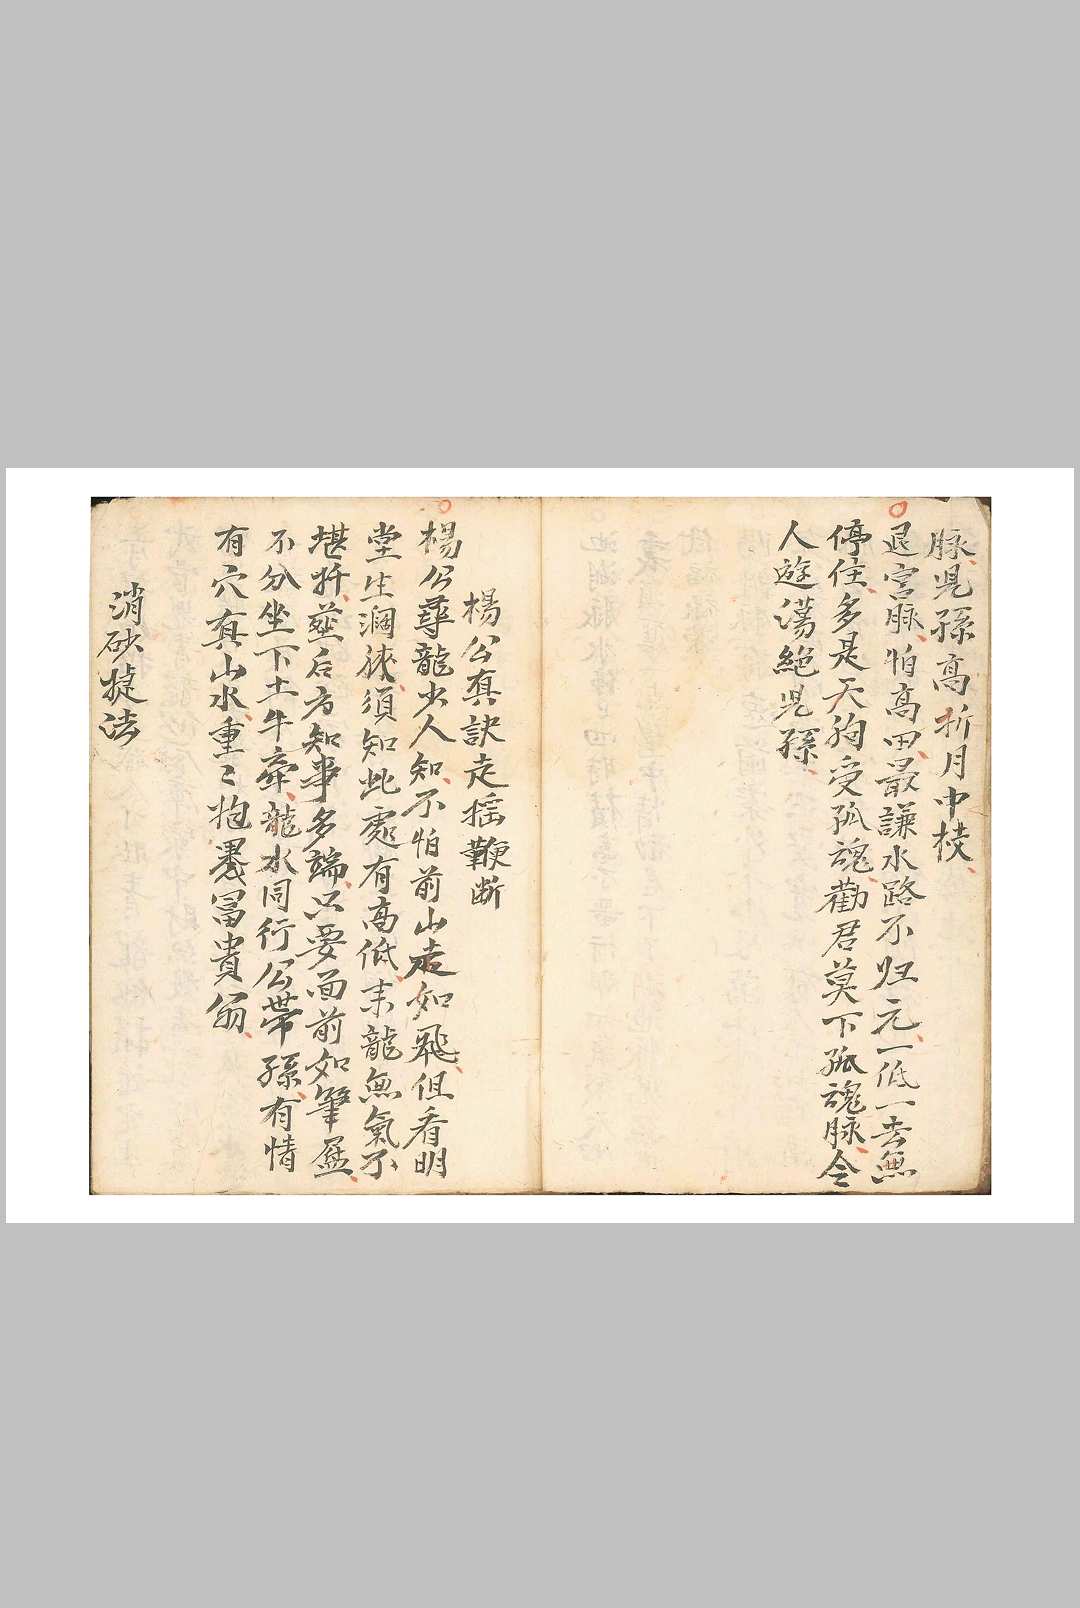 脉児孫高折月中枝
退宫脉怕高田最謙水路不归元一低一去無
停住多是天狗受孤魂勸君莫下孤魂脉令
人遊蕩絶児孫
楊公真訣走揺鞭断
楊公尋龍少人知不怕前山走如飛但看明
堂生濶狹須知此處有高低末龍無氣不
堪扦塟后方知事多端只要面前如筆
不分坐下土牛牽龍水同行公帶孫有情
有穴真山水重〻抱褁冨貴翁
消砂捷法